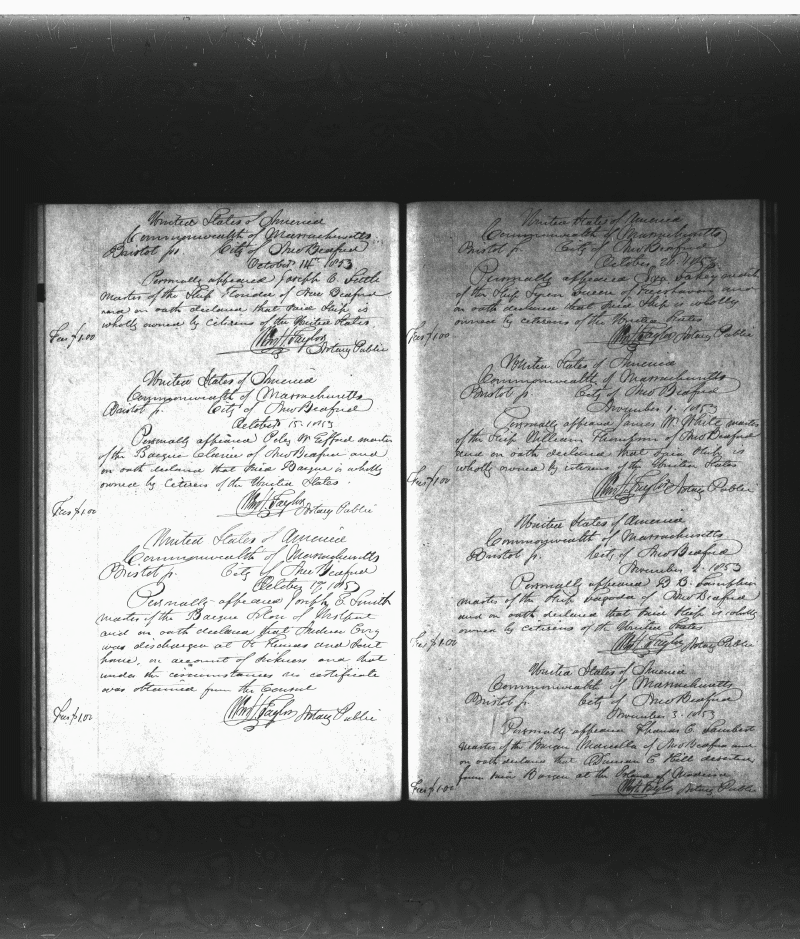 United States of America
Commonwealth of Massachusetts
Bristol ss. City of New Bedford
October 14th 1853
Personally appeared Joseph C. Little
master of the Ship of New Bedford
and on oath declared that said Ship is
wholly owned by citizens of the United States
Fees $1.00
Wm H Taylor
Notary Public
United States of America
Commonwealth of Massachusetts
Bristol ss. City of New Bedford
October 15. 1853
Personally appeared W. Gifford master
of the Barque of New Bedford and
on oath declared that said Barque is wholly
owned by citizens of the United States
Wm H Taylor Notary Public
Fees $1.00
United States of America
Commonwealth of Massachusetts
Bristol ss. City of New Bedford
October 19, 1853
Personally appeared Joseph E. Smith
master of the Barque of Westport
and on oath declared that Andrew
was discharged at St and sent
home, on account of sickness and that
under the circumstances no certificate
was obtained from the Consul
Wm H Taylor Notary Public
Fees $1.00
United States of America
Commonwealth of Massachusetts
Bristol ss. City of New Bedford
October 1853
Personally appeared master
of the Ship of Fairhaven and
on oath declared that said Ship is wholly
owned by citizens of the United States
Wm H Taylor Notary Public
Fees $1.00
United States of America
Commonwealth of Massachusetts
Bristol ss. City of New Bedford
November 1. 1853
Personally appeared James W. White master
of the Ship William Thompson of New Bedford
and on oath declared that said Ship is
wholly owned by citizens of the United States
Fees $1.00
Wm H Taylor Notary Public
United States of America
Commonwealth of Massachusetts
Bristol ss. City of New Bedford
November 2. 1853
Personally appeared
master of the Ship Lagoda of New Bedford
and on oath declared that said Ship is wholly
owned by citizens of the United States
Fees $1.00
Wm H Taylor Notary Public
United States of America
Commonwealth of Massachusetts
Bristol ss. City of New Bedford
November 3. 1853
Personally appeared Thomas C. Lambert
master of the Barque Marcella of New Bedford and
on oath declared that Duncan C Hill deserted
from said Barque at the Island of
Fees $1.00
Wm H Taylor Notary Public